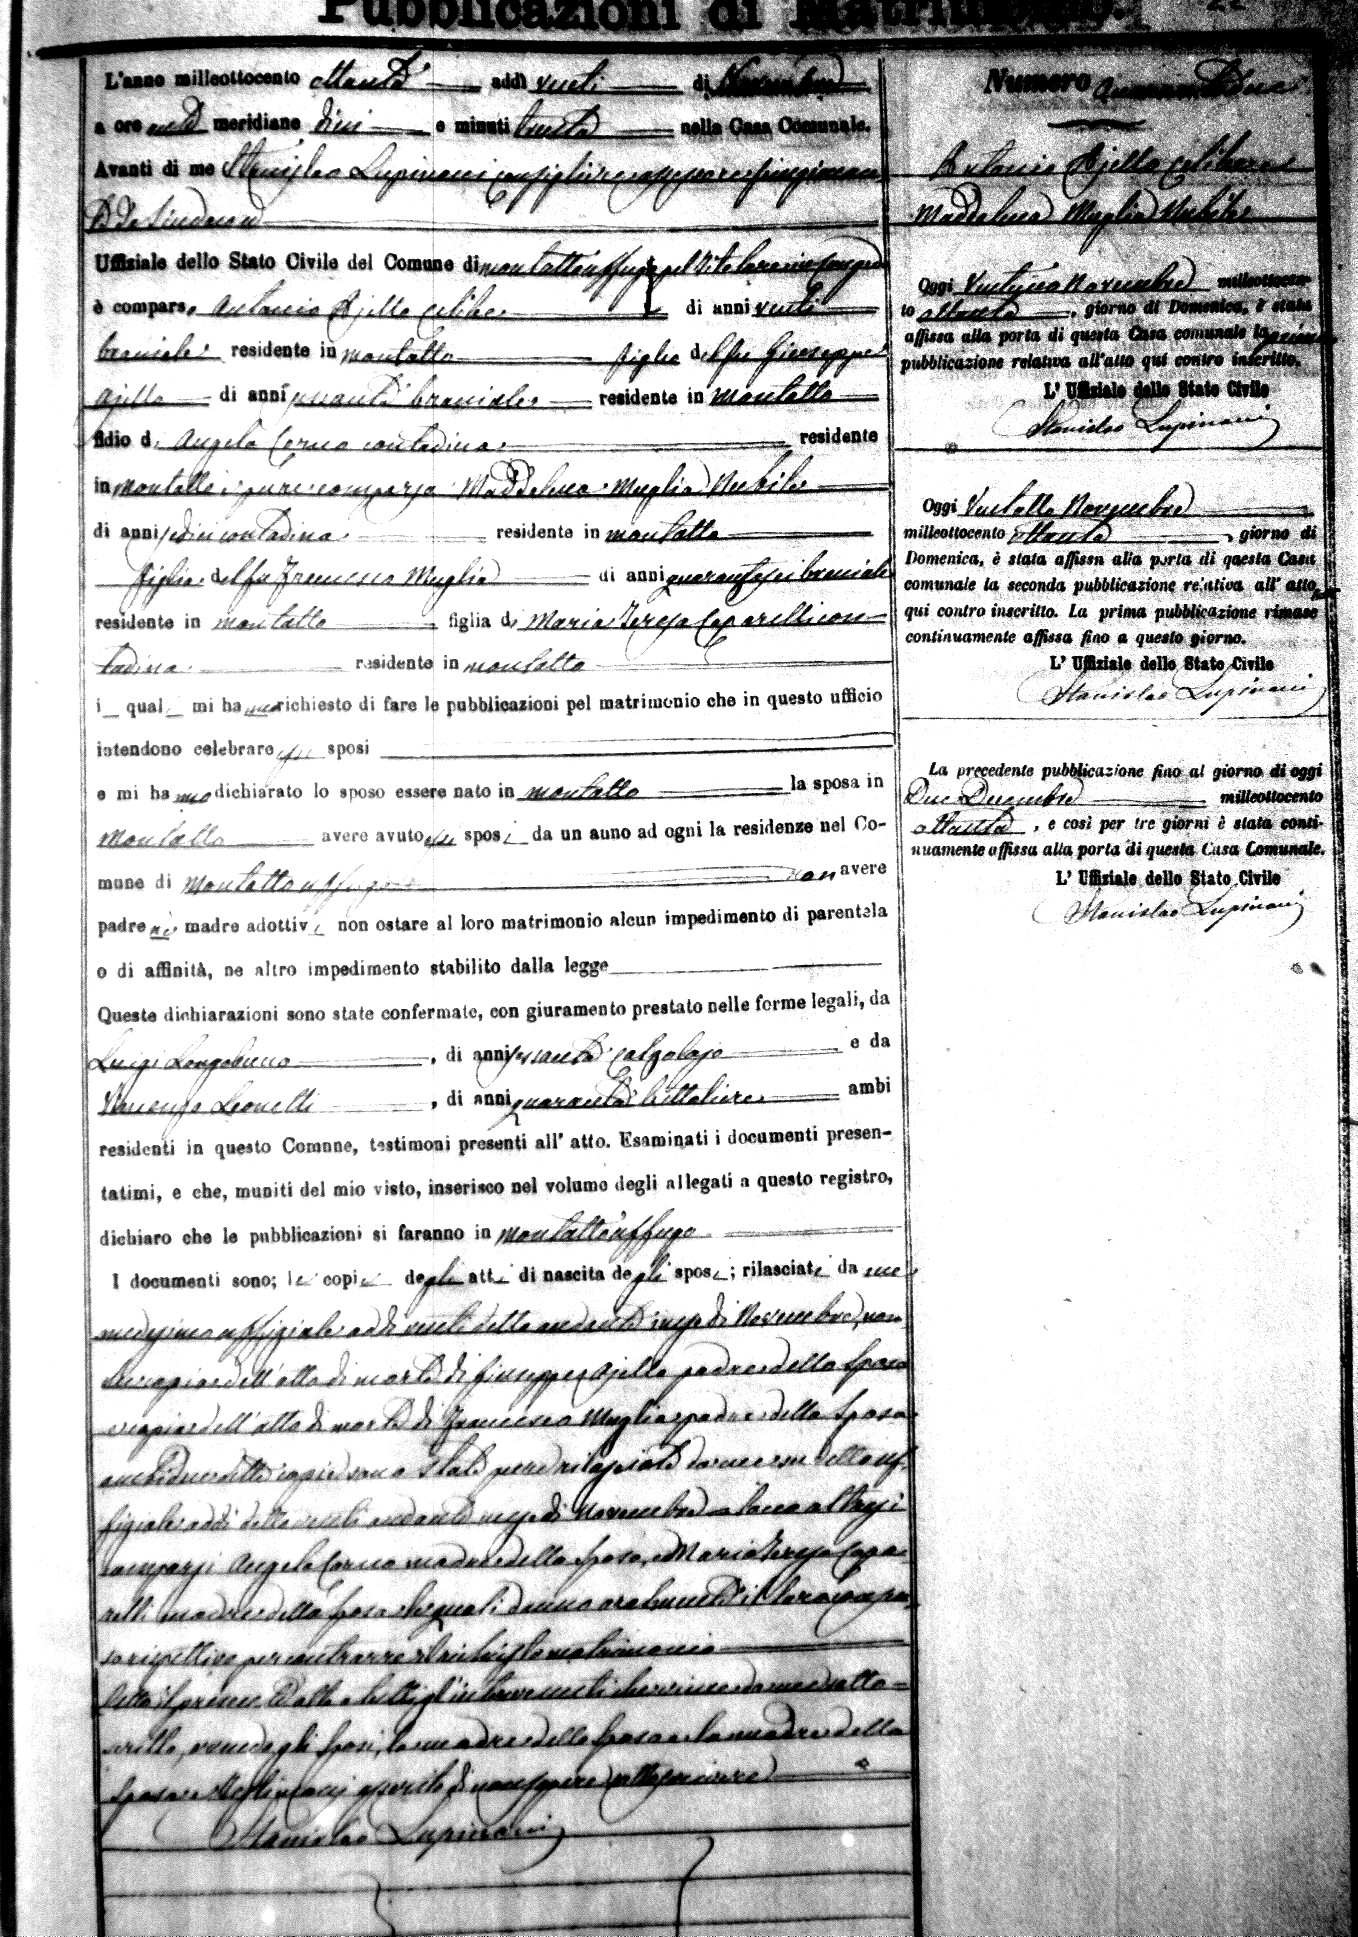 Pubblicazioni di Matrimonio.
L'anno milleottocento ottanta addì venti di Novembre
a ore anti meridiane dieci e minuti trenta nella Casa Comunale.
Avanti di me Stanislao Lupinacci consigliere assessore funzionan
te da Sindaco
Uffiziale dello Stato Civile del Comune di Montalto Uffugo pel titolare in congedo
è comparso Antonio Ajello celibe di anni venti
bracciale residente in Montalto figlio del fu Giuseppe
Ajello di anni bracciale residente in Montalto
e di Angela contadina residente
in Montalto è pure comparsa Maddalena Muglia Nubile
di anni sedici contadina residente in Montalto
figlia del fu Francesco Muglia di anni quarantasei bracciale
residente in Montalto figlia di Maria Teresa Caparelli con
tadina residente in Montalto
i quali mi hanno richiesto di fare le pubblicazioni pel matrimonio che in questo ufficio
intendono celebrare essi sposi
e mi hanno dichiarato lo sposo essere nato in Montalto la sposa in
Montalto avere avuto essi sposi da un anno ad ogni la residenze nel Co-
mune di Montalto Uffugo non avere
padre nè madre adottivi non ostare al loro matrimonio alcun impedimento di parentela
o di affinità, ne altro impedimento stabilito dalla legge
Queste dichiarazioni sono state confermate, con giuramento prestato nelle forme legali, da
Luigi Longobucco, di anni sessanta calzolajo e da
Vincenzo Leonetti, di anni quaranta bettoliere ambi
residenti in questo Comune, testimoni presenti all' atto. Esaminati i documenti presen-
tatimi, e che, muniti del mio visto, inserisco nel volume degli allegati a questo registro,
dichiaro che le pubblicazioni si faranno in Montalto Uffugo
I documenti sono; le copie degli atti di nascita degli sposi; rilasciati da me
medesimo uffiziale addi venti detto andante mese di Novembre, non
che copia dell'atto di morte di Giuseppe Ajello padre dello sposo
e copia dell'atto di morte di Francesco Muglia padre della sposa
ambidue dette copie sono state pure rilasciate da me su detto uf
fiziale addi detto venti andante mese di Novembre. Sono altresì
comparsi Angela madre dello sposo, e Maria Teresa Capa
relli madre della sposa le quali danno oralmente il loro consen
so rispettivo per contrarre il matrimonio
Letto il presente atto a tutti gl'intervenuti che viene da me sotto=
scritto, non dagli sposi, la madre dello sposo e la madre della
sposa e testimoni asserito di non sapere sottoscrivere
Stanislao Lupinacci
Numero quarantadue
Antonio Ajello Celibe
Maddalena Muglia Nubile
Oggi Ventuno Novembre milleottocen-
to ottanta, giorno di Domenica, è stata
affissa alla porta di questa Casa comunale la prima
pubblicazione relativa all'atto qui contro inscritto.
L' Uffiziale dello Stato Civile
Stanislao Lupinacci
Oggi Ventotto Novembre
milleottocento ottanta, giorno di
Domenica, è stata affissa alla porta di questa Casa
comunale la seconda pubblicazione relativa all' atto
qui contro inscritto. La prima pubblicazione rimase
continuamente affissa fino a questo giorno.
L' Uffiziale dello Stato Civile
Stanislao Lupinacci
La precedente pubblicazione fino al giorno di oggi
Due Decembre milleottocento
ottanta, e così per tre giorni è stata conti-
nuamente affissa alla porta di questa Casa Comunale.
L' Uffiziale dello Stato Civile
Stanislao Lupinacci